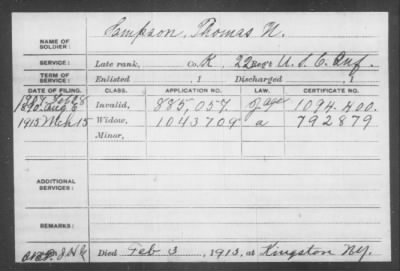 NAME OF SOLDIER: Simpson, Thomas N.
SERVICE: Late rank, Co. K, 22 Reg't U. S. C. Inf.
TERM OF SERVICE: Enlisted , 1 Discharged , 1
DATE OF FILING. CLASS. APPLICATION NO. LAW. CERTIFICATE NO.
1907 Feb 28
1890 Aug 6 Invalid, 885,057 of age 1094.400.
1913 Mch 15 Widow, 1043709 a 792879
Minor,
ADDITIONAL SERVICES:
REMARKS:
Died Feb 3, 1913, at Kingston NY.